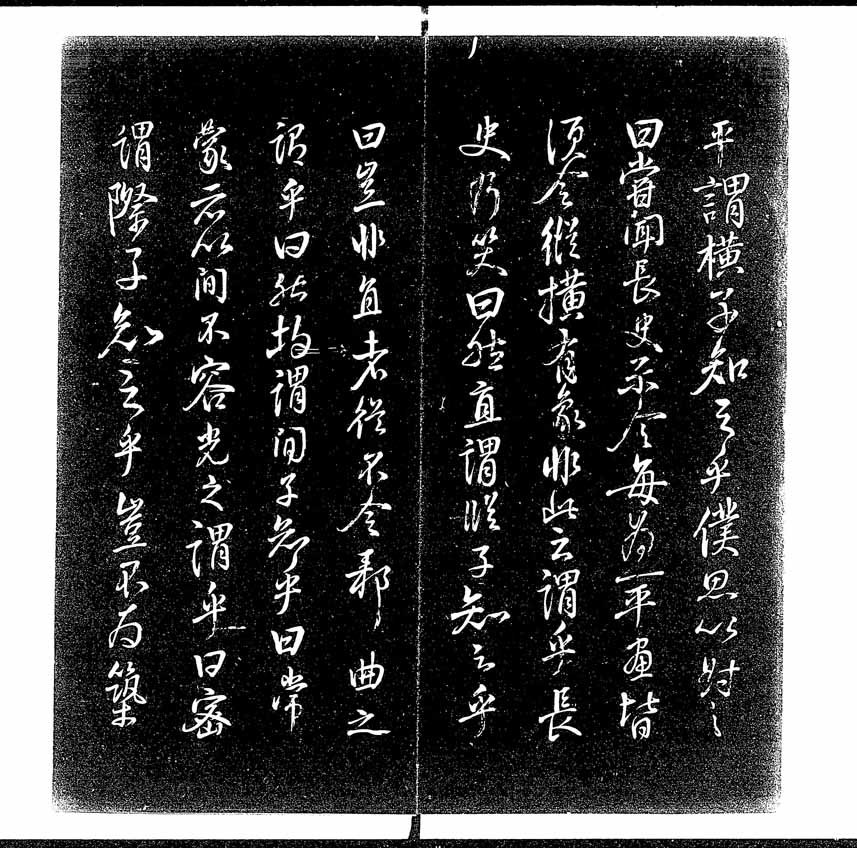 平謂橫子知之乎僕思以對之
曰嘗聞長史示令每為一平畫皆
須令縱橫有象非此之謂乎長
史乃笑曰然直謂縱子知之乎
曰豈非直者從不令邪曲之
謂乎曰然均謂間子知乎曰常
蒙示以間不容光之謂乎曰密
謂際子知之乎豈不為築